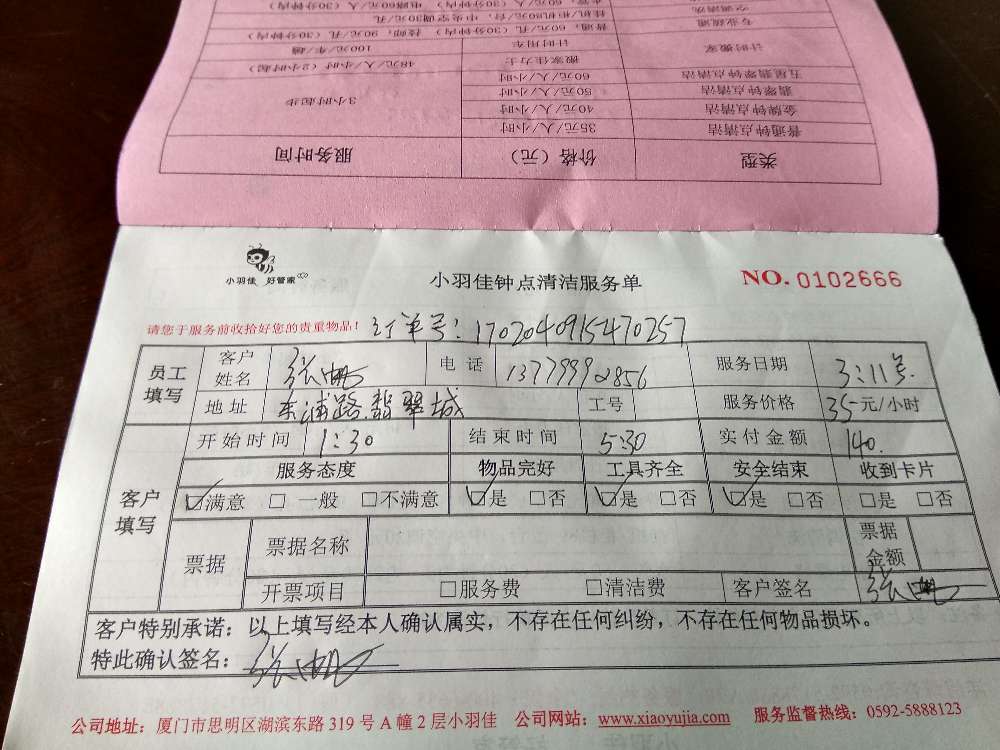 类型 价格（元） 服务时间
普通钟点清洁 35元/人/小时 3小时起步
金牌钟点清洁 40元/人/小时
翡翠钟点清洁 50元/人/小时
五星翡翠钟点清洁 60元/人/小时
计时搬家 搬家佳力士 48元/人/小时（2小时起）
计时用车 100元/车/趟
专业疏通 普通，60元/人（30分钟内） 技师，90元/孔（30分钟内）
空调清洗 挂机/柜机80元/台，中央空调30元/孔
小羽佳 好管家
小羽佳钟点清洁服务单
NO. 0102666
请您于服务前收拾好您的贵重物品！ 订单号：1702040915470257
员工填写 客户姓名 张帆 电话 13779992856 服务日期 3:11号
地址 东浦路翡翠城 工号 服务价格 35元/小时
客户填写 开始时间 1:30 结束时间 5:30 实付金额 140
服务态度 物品完好 工具齐全 安全结束 收到卡片
☑满意 □一般 □不满意 ☑是 □否 ☑是 □否 ☑是 □否 □是 □否
票据 票据名称 票据金额
开票项目 □服务费 □清洁费 客户签名 张帆
客户特别承诺：以上填写经本人确认属实，不存在任何纠纷，不存在任何物品损坏。
特此确认签名：张帆
公司地址：厦门市思明区湖滨东路 319 号 A 幢 2 层小羽佳 公司网站：www.xiaoyujia.com 服务监督热线：0592-5888123